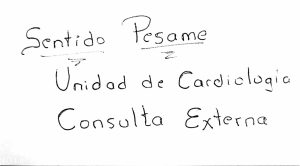 Sentido Pesame
Unidad de Cardiologia
Consulta Externa